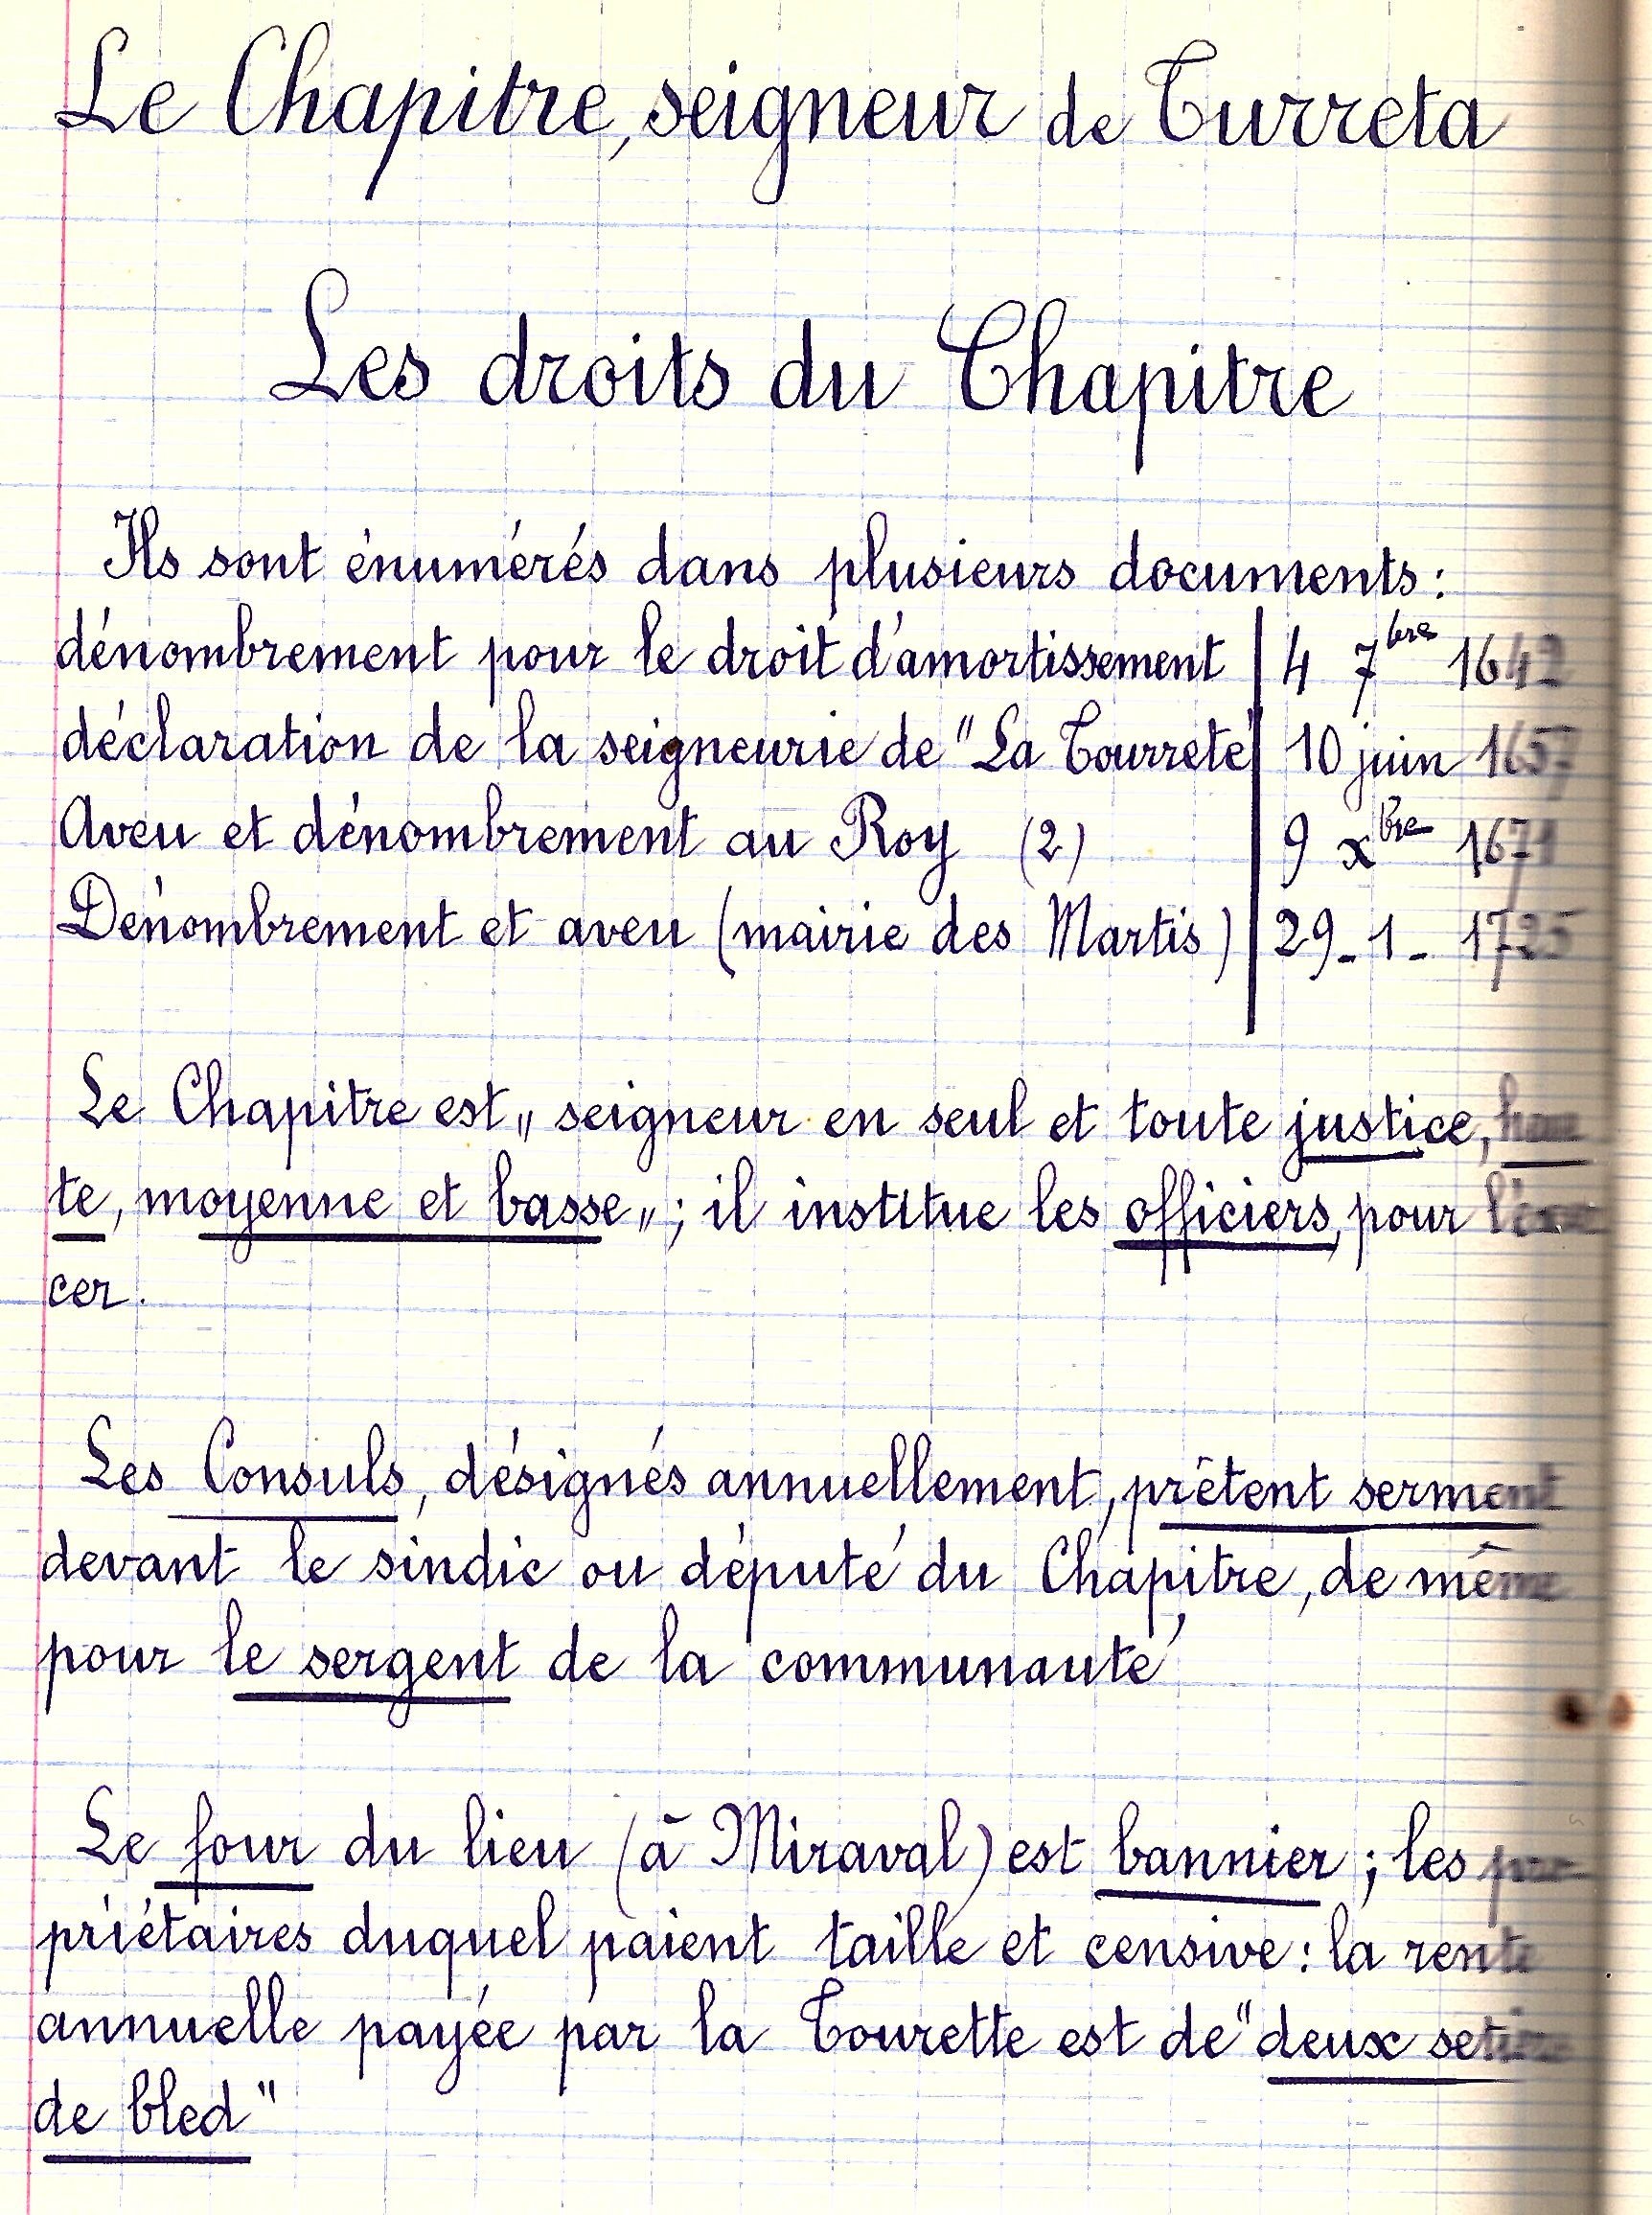 Le Chapitre, seigneur de Turreta
Les droits du Chapitre
Ils sont énumérés dans plusieurs documents :
dénombrement pour le droit d'amortissement | 4 7bre 1642
déclaration de la seigneurie de "La Tourrete" | 10 juin 1657
Aveu et dénombrement au Roy (2) | 9 xbre 1671
Dénombrement et aveu (mairie des Martis) | 29-1-1725
Le Chapitre est „ seigneur en seul et toute justice, hau
te, moyenne et basse „ ; il institue les officiers, pour l'exer
cer.
Les Consuls, désignés annuellement, prêtent serment
devant le sindic ou député du Chapitre, de même
pour le sergent de la communauté
Le four du lieu (à Miraval) est bannier ; les pro-
priétaires duquel paient taille et censive : la rente
annuelle payée par la Tourette est de "deux setiers
de bled"